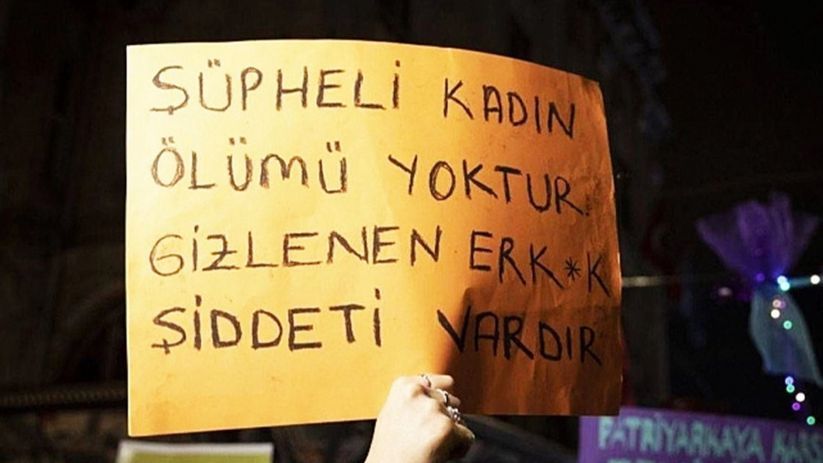 ŞÜPHELİ KADIN
ÖLÜMÜ YOKTUR.
GİZLENEN ERK*K
ŞİDDETİ VARDIR
PATRİYARKAYA KARŞ